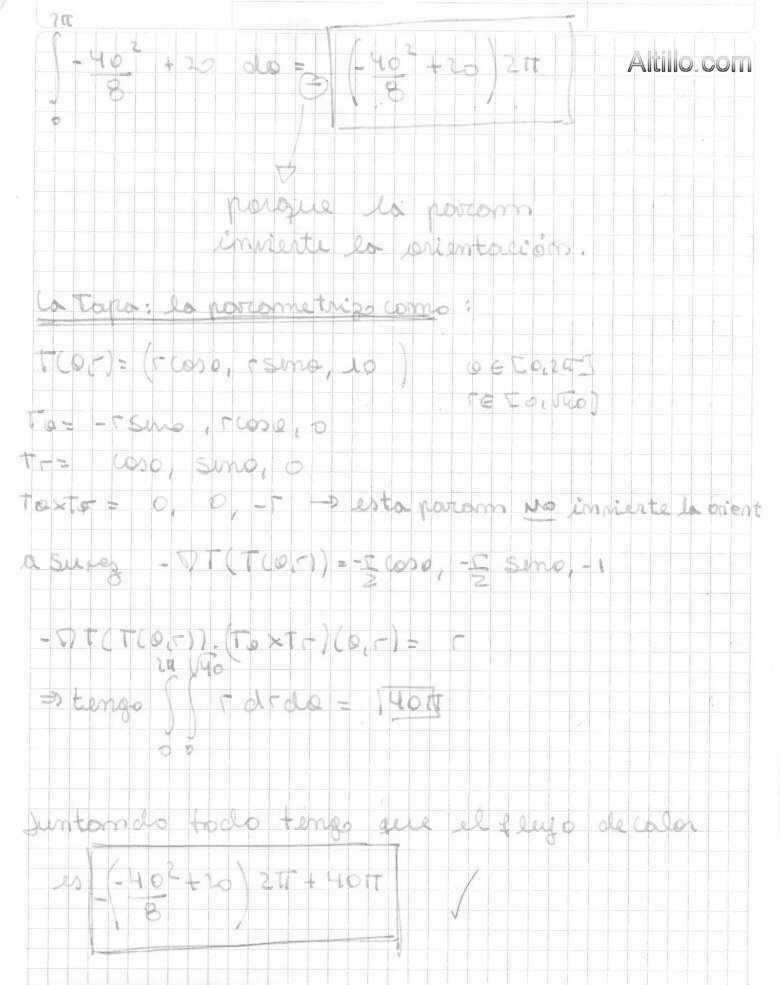 ∫₀^{2π} -40²/8 + 20 dθ = (-40²/8 + 20) 2π
Altillo.com
porque la param
invierte la orientación.
La Tapa: la parametrizo como:
T(θ,r) = (r cosθ, r sinθ, 10) θ ∈ [0,2π]
r ∈ [0,√40]
Tθ = -r sinθ, r cosθ, 0
Tr = cosθ, sinθ, 0
Tθ×Tr = 0, 0, -r → esta param NO invierte la orient
a su vez -∇T(T(θ,r)) = -r/2 cosθ, -r/2 sinθ, -1
-∇T(T(θ,r)).(Tθ×Tr)(θ,r) = r
⇒ tengo ∫₀^{2π} ∫₀^{√40} r dr dθ = 40π
Juntando todo tengo que el flujo de calor
es -(-40²/8 + 20) 2π + 40π ✓